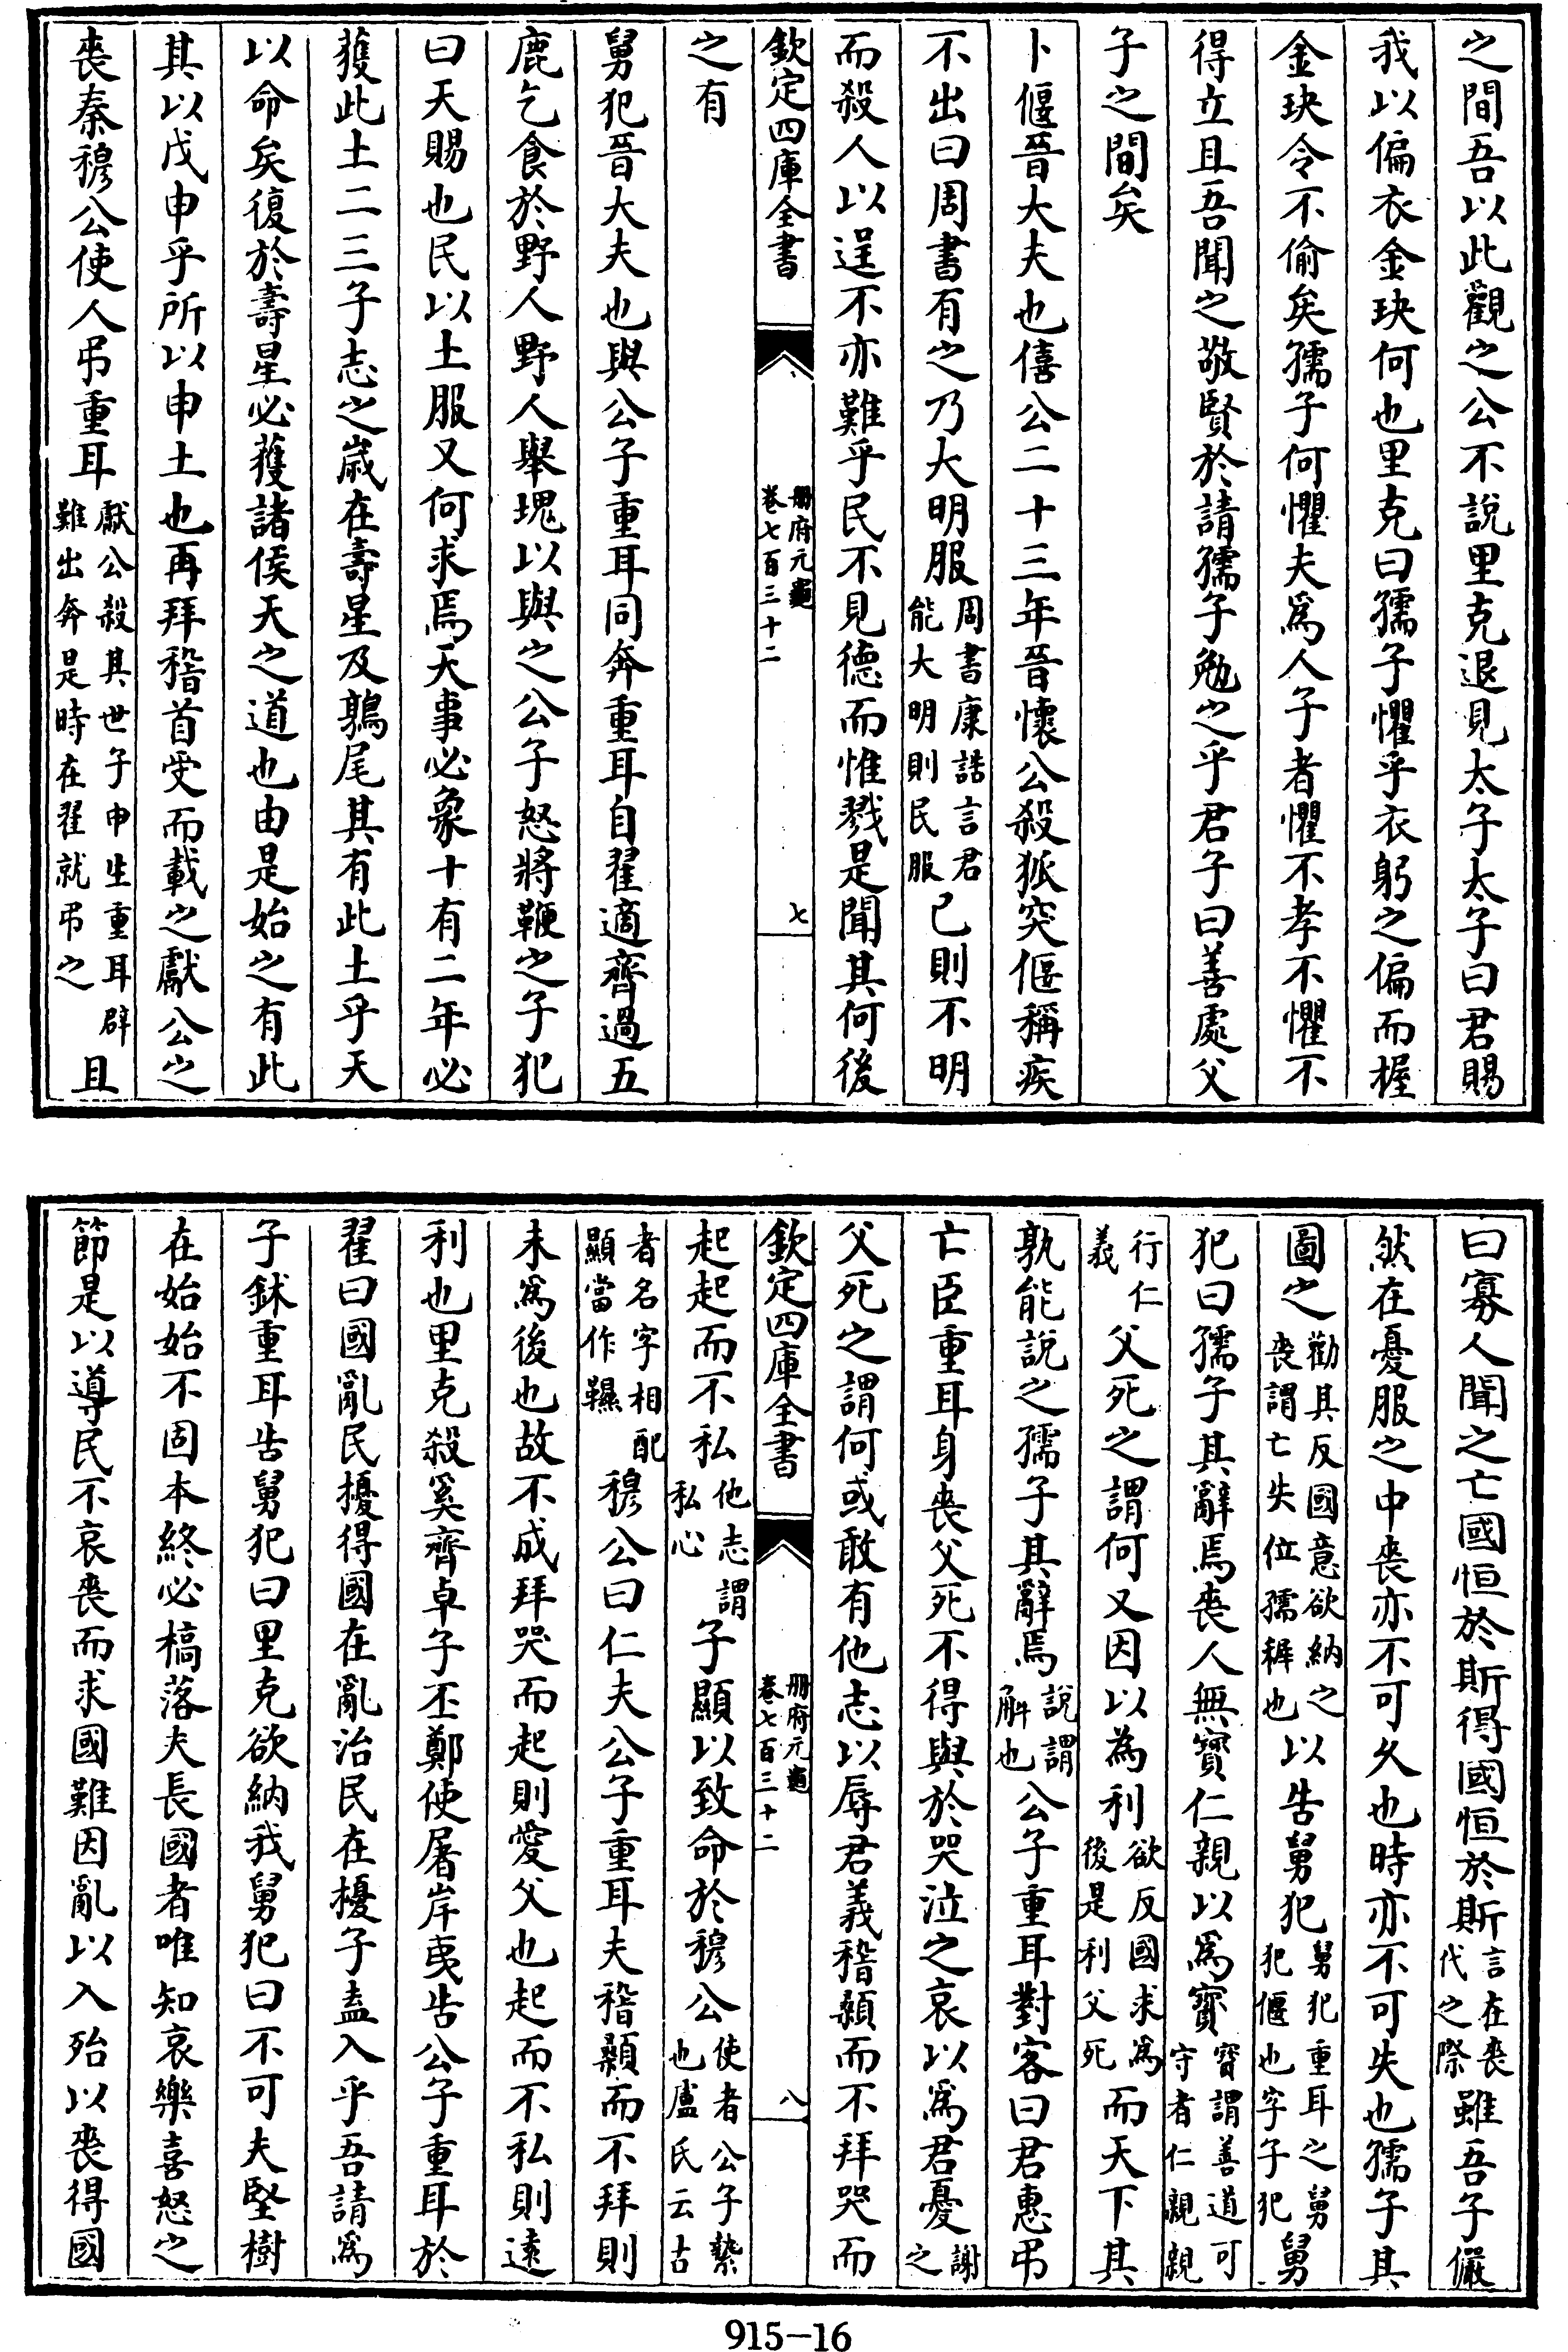 之間吾以此觀之公不說里克退見太子太子曰君賜
我以偏衣金玦何也里克曰孺子懼乎衣躬之偏而握
金玦令不偷矣孺子何懼夫爲人子者懼不孝不懼不
得立且吾聞之敬賢於請孺子勉之乎君子曰善處父
子之間矣
卜偃晉大夫也僖公二十三年晉懷公殺狐突偃稱疾
不出曰周書有之乃大明服周書康誥言君能大明則民服已則不明
而殺人以逞不亦難乎民不見德而惟戮是聞其何後
欽定四庫全書 冊府元龜卷七百三十二 七
之有
舅犯晉大夫也與公子重耳同奔重耳自翟適齊過五
鹿乞食於野人野人舉塊以與之公子怒將鞭之子犯
曰天賜也民以土服又何求焉天事必象十有二年必
獲此土二三子志之歲在壽星及鶉尾其有此土乎天
以命矣復於壽星必獲諸侯天之道也由是始之有此
其以戊申乎所以申土也再拜稽首受而載之獻公之
喪秦穆公使人弔重耳獻公殺其世子申生重耳辟難出奔是時在翟就弔之且
曰寡人聞之亡國恒於斯得國恒於斯言在喪代之際雖吾子儼
然在憂服之中喪亦不可久也時亦不可失也孺子其
圖之勸其反國意欲納之喪謂亡失位孺穉也以告舅犯舅犯重耳之舅犯偃也字子犯舅
犯曰孺子其辭焉喪人無寶仁親以爲寳寳謂善道可守者仁親親
行仁義父死之謂何又因以為利欲反國求爲後是利父死而天下其
孰能說之孺子其辭焉說謂解也公子重耳對客曰君惠弔
亡臣重耳身喪父死不得與於哭泣之哀以爲君憂謝之
父死之謂何或敢有他志以辱君義稽顙而不拜哭而
欽定四庫全書 冊府元龜卷七百三十二 八
起起而不私他志謂私心子顯以致命於穆公使者公子縶也盧氏云古
者名字相配顯當作韅穆公曰仁夫公子重耳夫稽顙而不拜則
未爲後也故不成拜哭而起則愛父也起而不私則遠
利也里克殺奚齊卓子丕鄭使屠岸夷告公子重耳於
翟曰國亂民擾得國在亂治民在擾子盍入乎吾請爲
子鉥重耳告舅犯曰里克欲納我舅犯曰不可夫堅樹
在始始不固本終必槁落夫長國者唯知哀樂喜怒之
節是以導民不哀喪而求國難因亂以入殆以喪得國
915-16